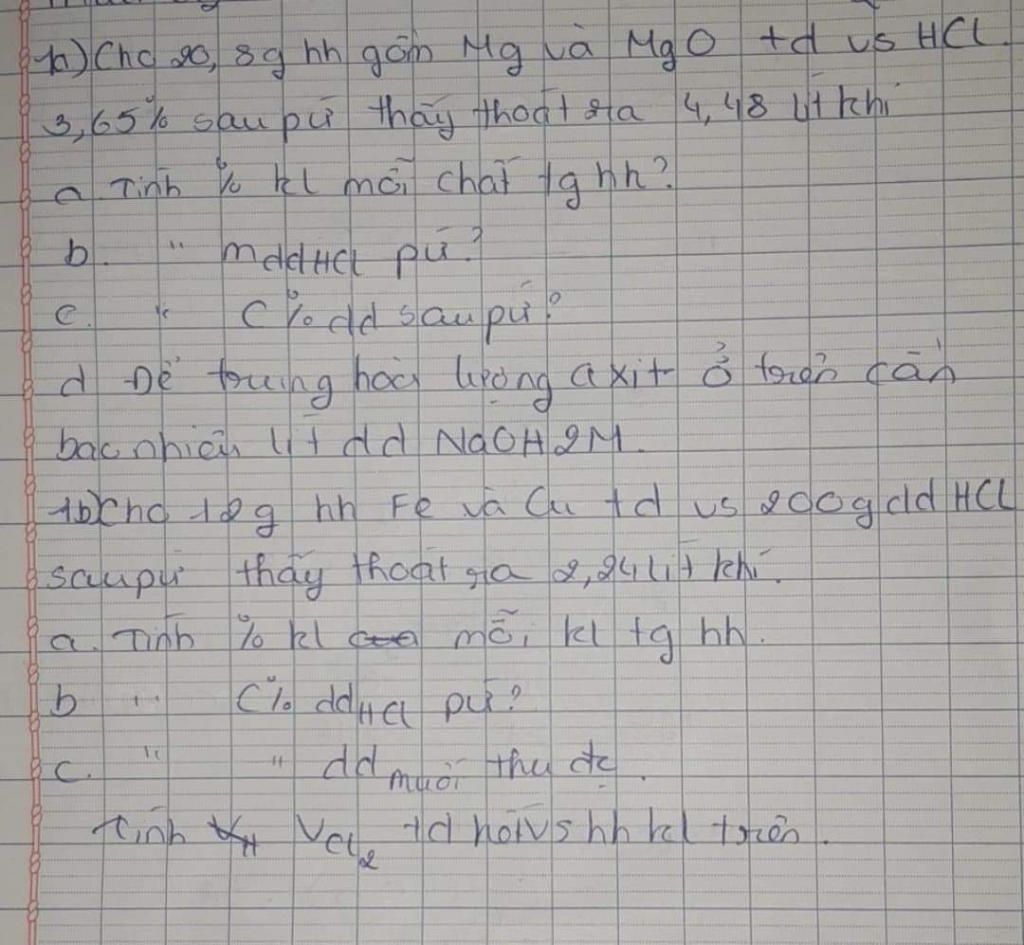 1a) Cho 20,8g hh gồm Mg và MgO td vs HCl
3,65% sau pứ thấy thoát ra 4,48 lít khí
a. Tính % kl mỗi chất tg hh?
b. " mddHCl pứ?
c. " C% dd sau pứ?
d Để trung hoà lượng axit ở trên cần
bao nhiêu lít dd NaOH 2M.
1b) Cho 12g hh Fe và Cu td vs 200g dd HCl
sau pứ thấy thoát ra 2,24 lít khí.
a. Tính % kl mỗi kl tg hh.
b " C% ddHCl pứ?
c. " " dd muối thu đc.
Tính VCl2 td hết vs hh kl trên.